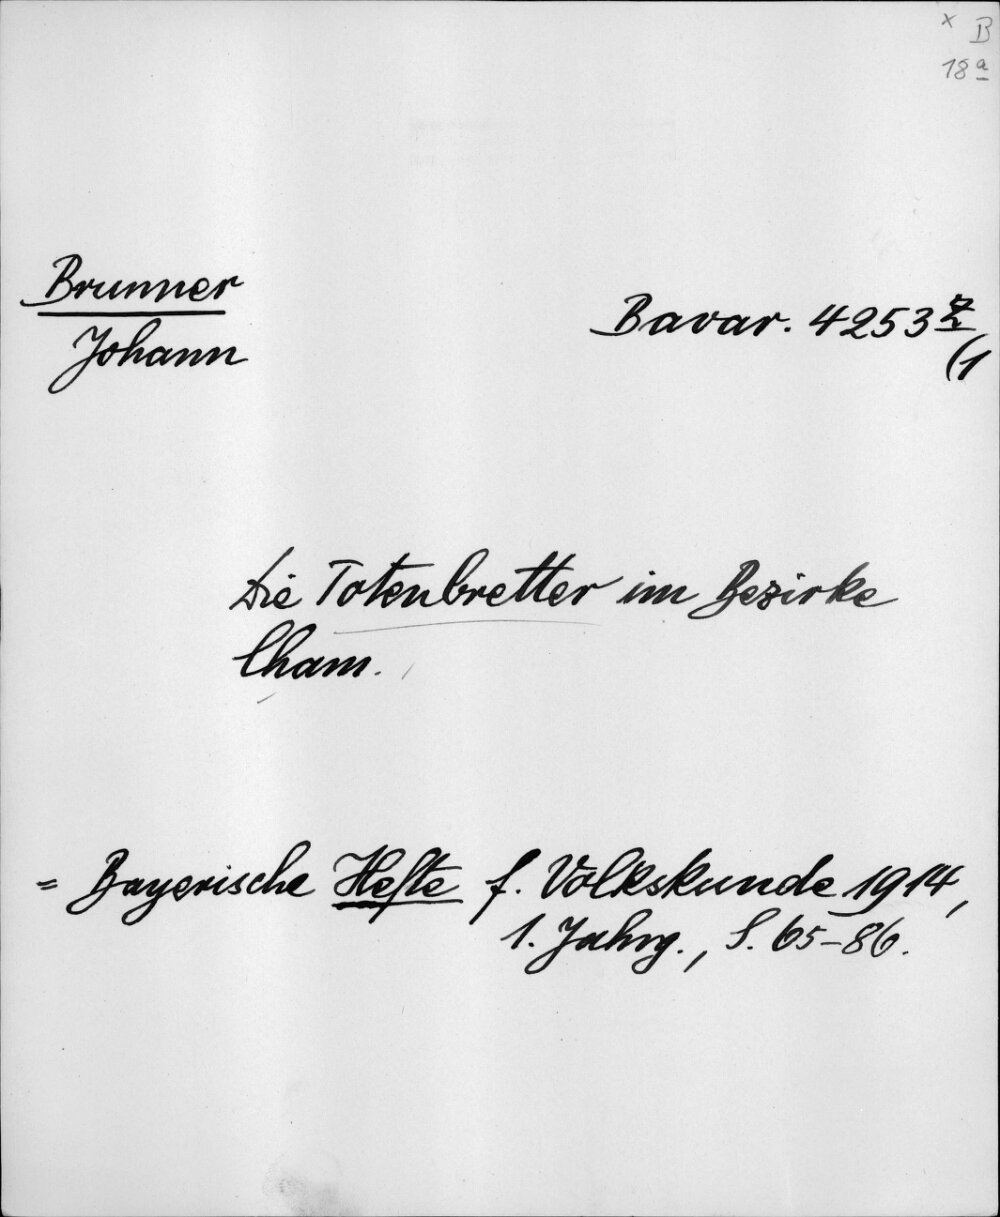 x B
18 a
Brunner
Johann
Bavar. 4253 z
(1
Die Totenbretter im Bezirke
Cham.
= Bayerische Hefte f. Volkskunde 1914,
1. Jahrg., S. 65-86.